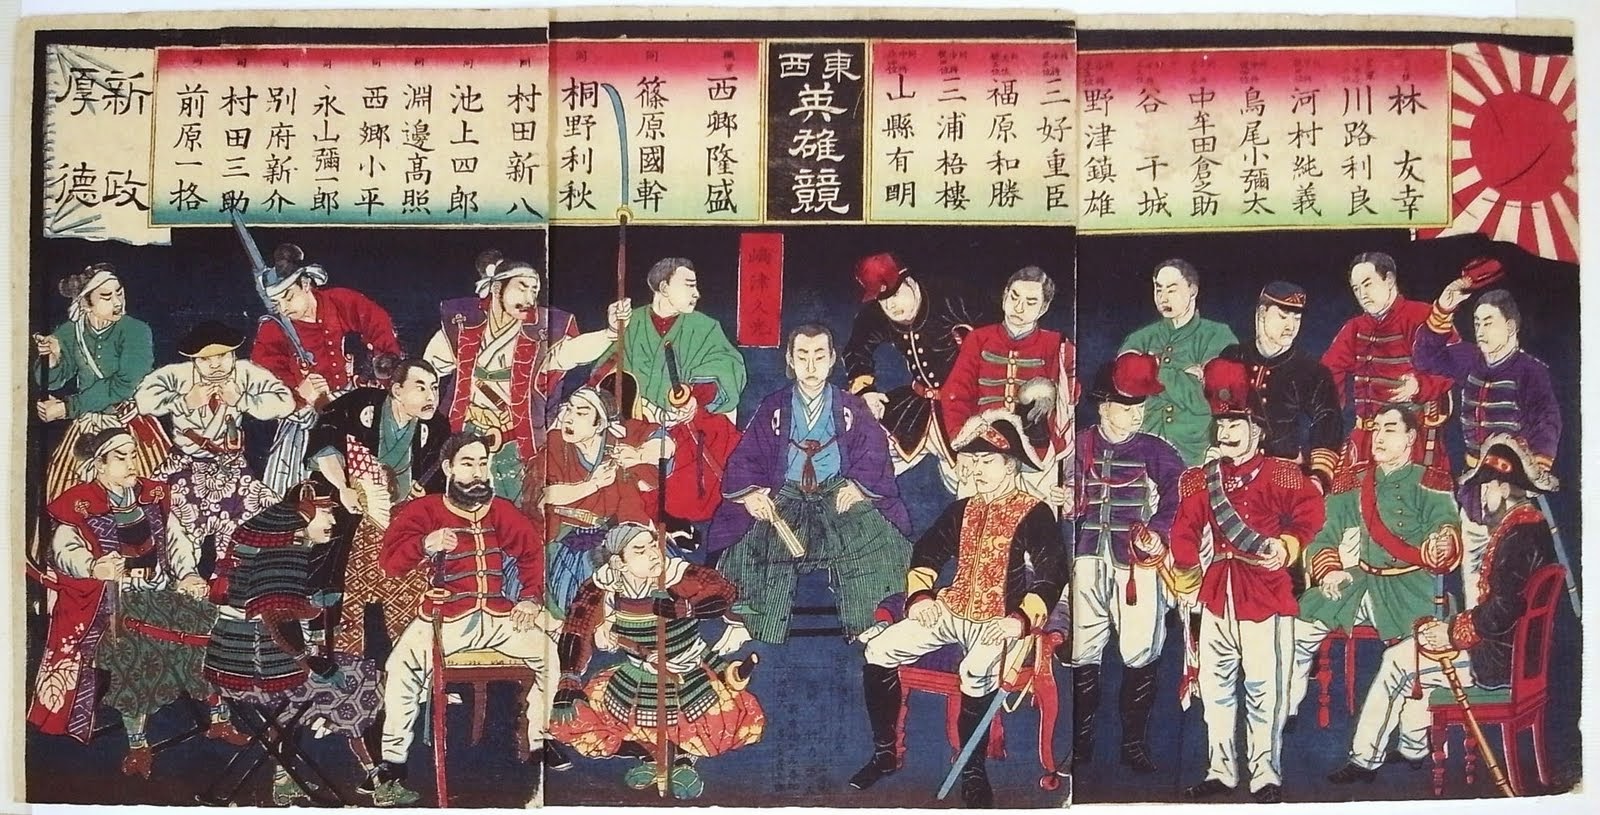 林友幸
川路利良
河村純義
鳥尾小彌太
中牟田倉之助
谷干城
野津鎮雄
三好重臣
福原和勝
三浦梧樓
山縣有明
東西
英雄競
西郷隆盛
同
篠原國幹
同
桐野利秋
同
村田新八
同
池上四郎
同
淵邊高照
同
西郷小平
同
永山彌一郎
同
別府新介
同
村田三助
同
前原一格
新政
厚德
嶋津久光